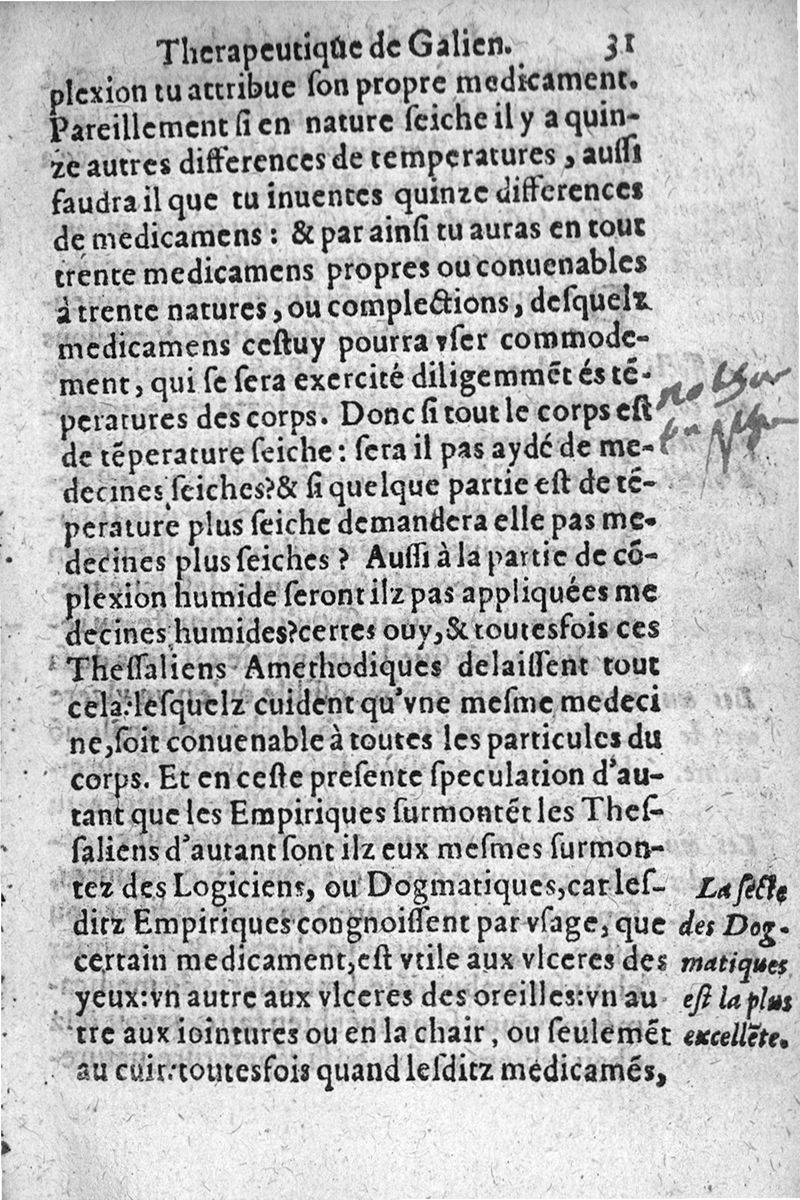 Therapeutique de Galien. 31
plexion tu attribue ſon propre medicament.
Pareillement ſi en nature ſeiche il y a quin-
ze autres differences de temperatures, auſſi
faudra il que tu inuentes quinze differences
de medicamens: & par ainſi tu auras en tout
trente medicamens propres ou conuenables
à trente natures, ou complections, deſquelz
medicamens ceſtuy pourra vſer commode-
ment, qui ſe ſera exercité diligemmẽt és tẽ-
peratures des corps. Donc ſi tout le corps eſt
de tẽperature ſeiche: ſera il pas aydé de me-
decines ſeiches? & ſi quelque partie eſt de tẽ-
perature plus ſeiche demandera elle pas me-
decines plus ſeiches? Auſſi à la partie de cõ-
plexion humide ſeront ilz pas appliquées me
decines humides? certes ouy, & toutesfois ces
Theſſaliens Amethodiques delaiſſent tout
cela: leſquelz cuident qu'vne meſme medeci
ne, ſoit conuenable à toutes les particules du
corps. Et en ceſte preſente ſpeculation d'au-
tant que les Empiriques ſurmontẽt les Theſ-
ſaliens d'autant ſont ilz eux meſmes ſurmon-
tez des Logiciens, ou Dogmatiques, car leſ-
ditz Empiriques congnoiſſent par vſage, que
certain medicament, eſt vtile aux vlceres des
yeux: vn autre aux vlceres des oreilles: vn au
tre aux iointures ou en la chair, ou ſeulemẽt
au cuir: toutesfois quand leſditz medicamẽs,
La ſecte
des Dog-
matiques
eſt la plus
excellẽte.